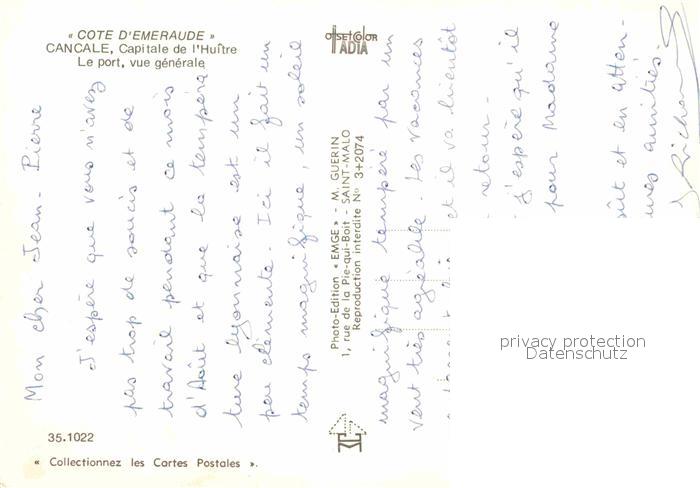 « COTE D'EMERAUDE »
CANCALE, Capitale de l'Huître
Le port, vue générale
OFFSET COLOR
IADIA
Mon cher Jean-Pierre
J'espère que vous n'avez
pas trop de soucis et de
travail pendant ce mois
d'Août et que la tempéra
ture lyonnaise est un
peu clémente. Ici il fait un
temps magnifique, un soleil
magnifique tempéré par un
vent très agréable. Les vacances
et il va bientôt
retour.
J'espère qu'il
pour Madame
oût et en atten-
mes amitiés.
Photo-Edition « EMGE » - M. GUERIN
1, rue de la Pie-qui-Boit - SAINT-MALO
Reproduction interdite N° 3+2074
privacy protection
Datenschutz
35.1022
« Collectionnez les Cartes Postales ».